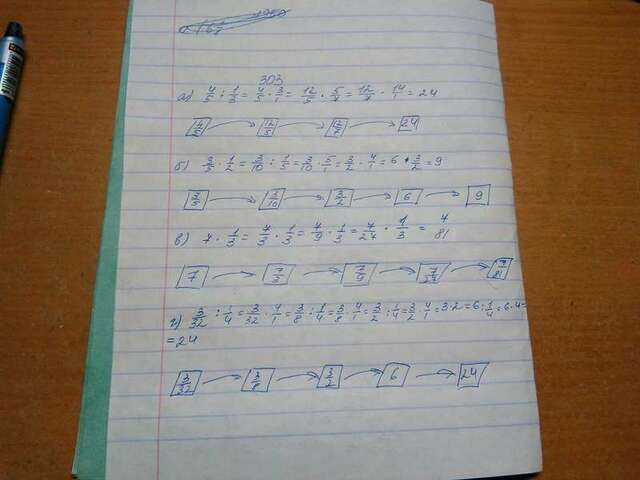 303
а) 4/5 : 1/3 = 4/5 · 3/1 = 12/5 · 5/7 = 12/7 · 14/1 = 24
4/5 → 12/5 → 12/7 → 24
б) 3/5 · 1/2 = 3/10 : 1/5 = 3/10 · 5/1 = 3/2 · 4/1 = 6 · 3/2 = 9
3/5 → 3/10 → 3/2 → 6 → 9
в) 7 · 1/3 = 7/3 · 1/3 = 7/9 · 1/3 = 7/27 · 1/3 = 7/81
7 → 7/3 → 7/9 → 7/27 → 7/81
г) 3/32 : 1/4 = 3/32 · 4/1 = 3/8 : 1/4 = 3/8 · 4/1 = 3/2 : 1/4 = 3/2 · 4/1 = 3·2 = 6 : 1/4 = 6·4 =
= 24
3/32 → 3/8 → 3/2 → 6 → 24